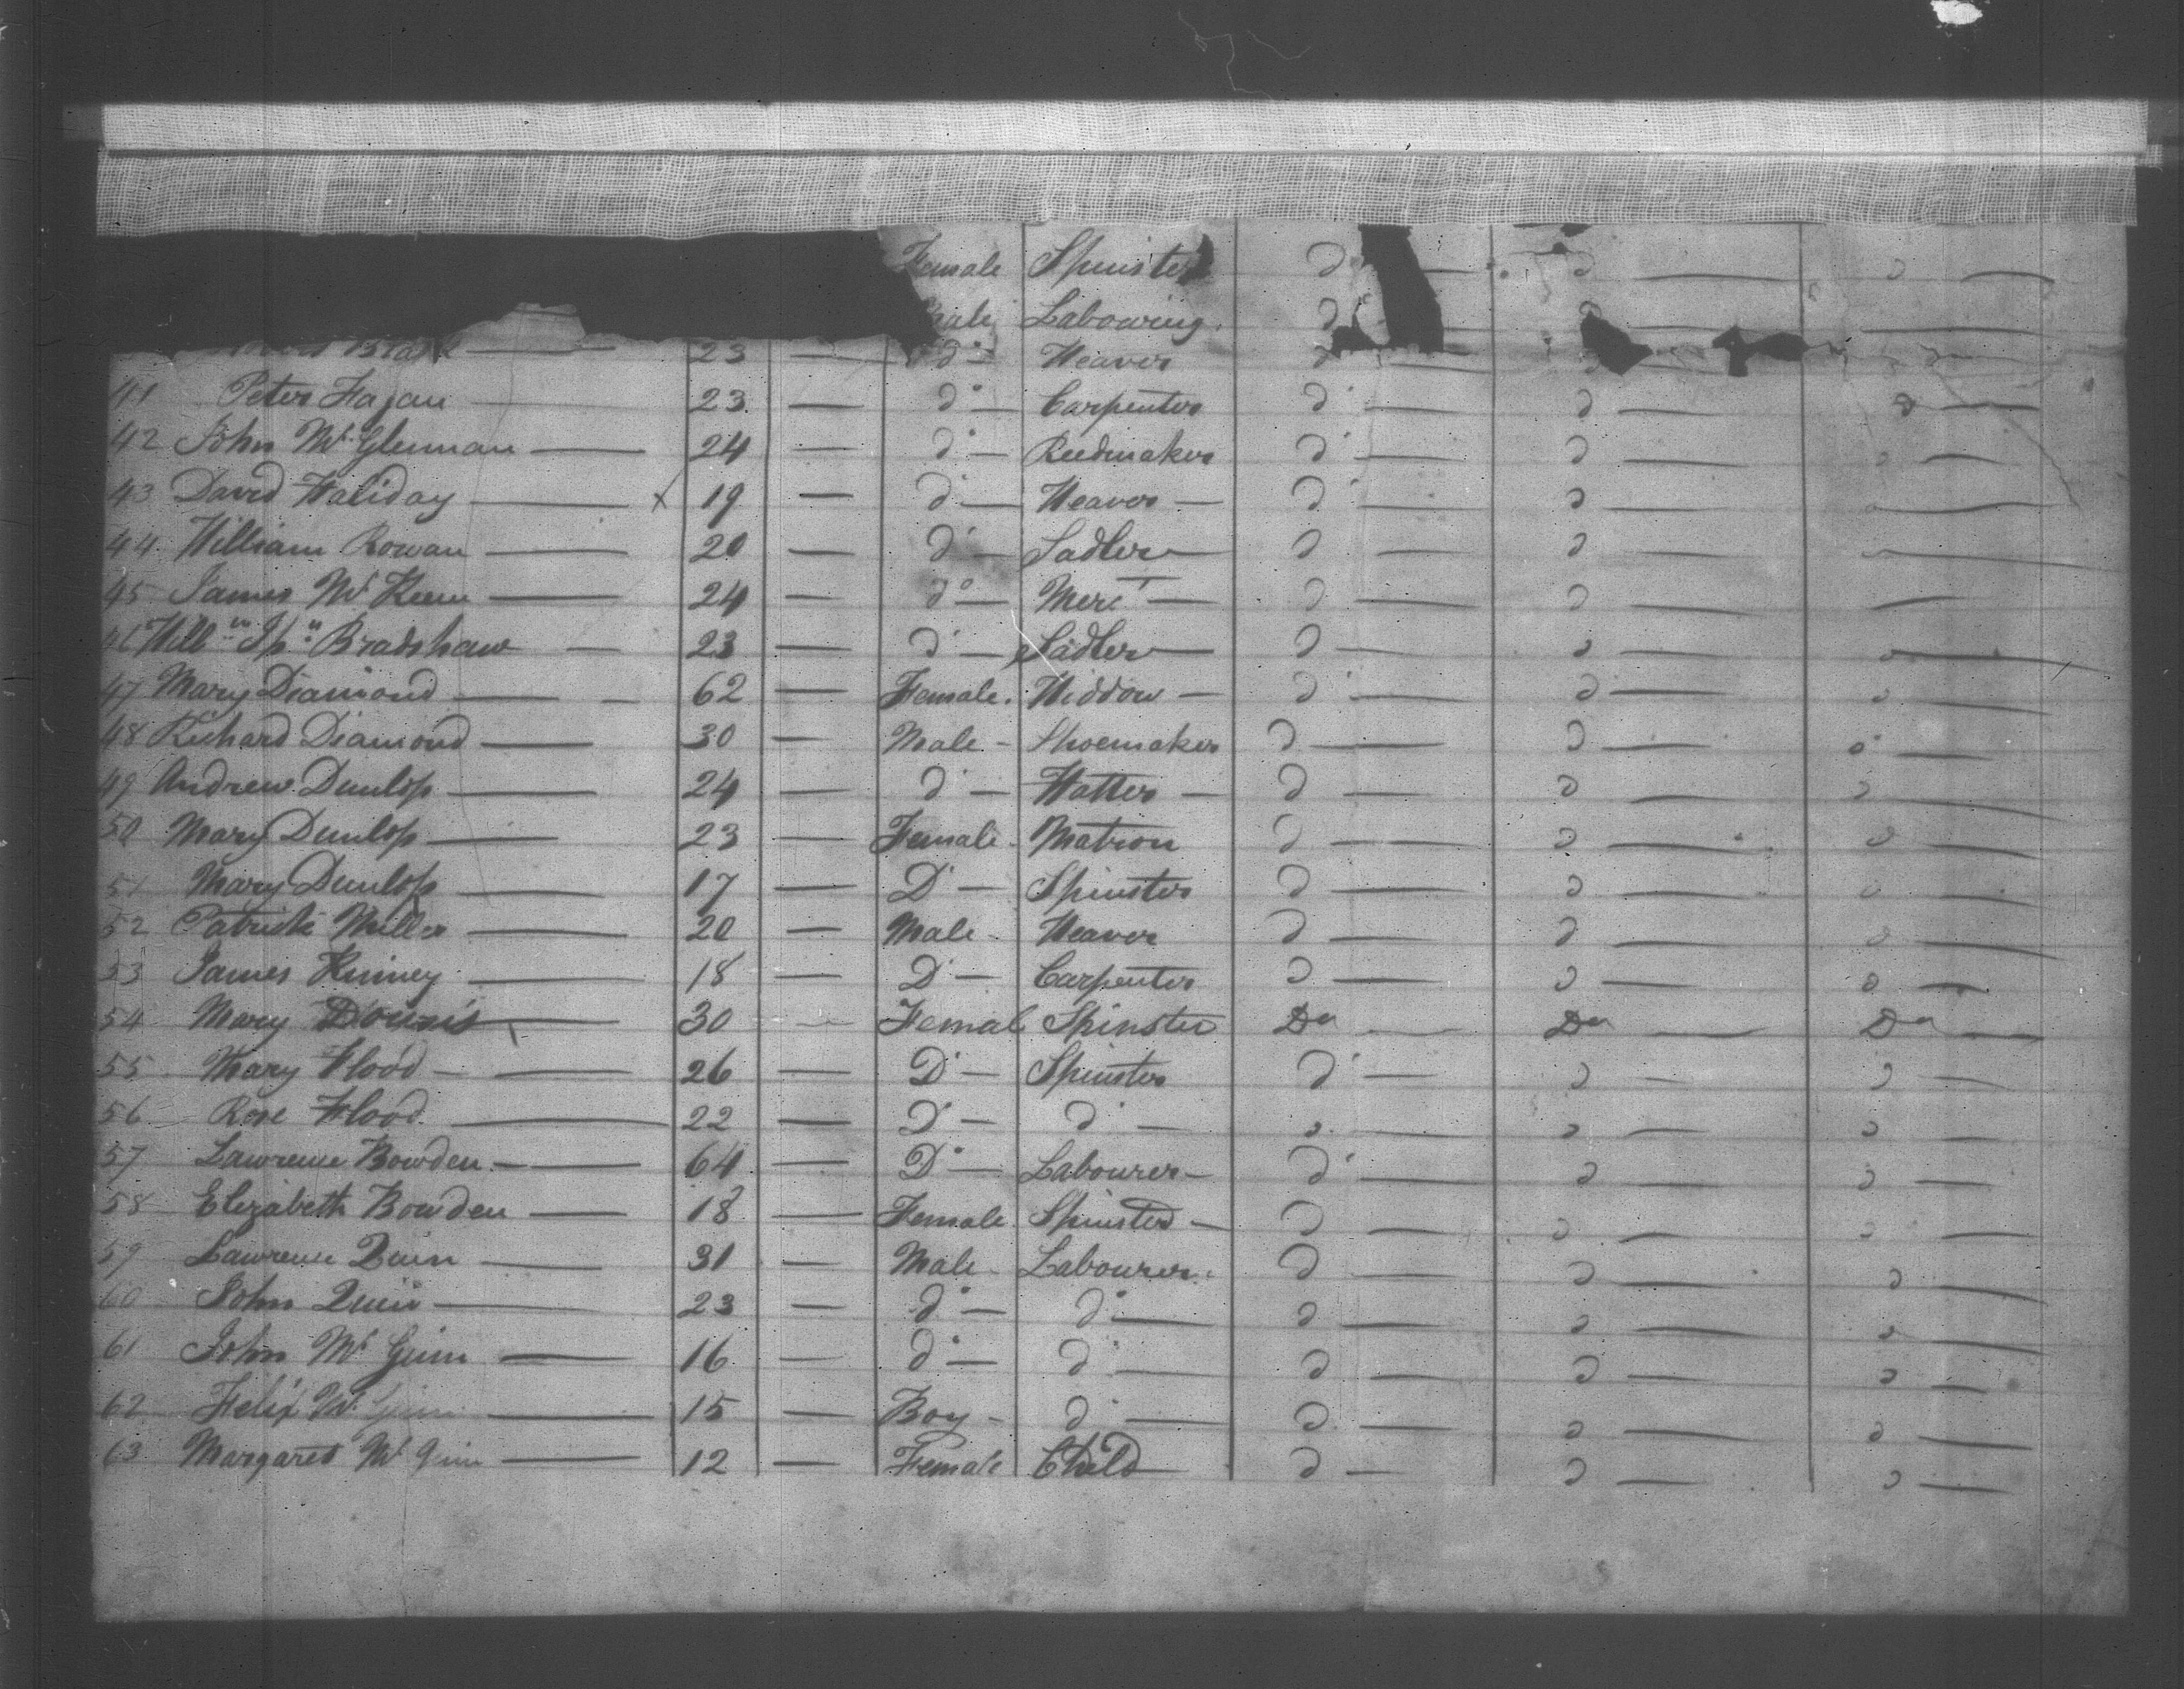 Female Spinster d
Male Labowing d
23 — do — Weaver d
41 Peter Fagan — 23 — do — Carpenter do — d — d —
42 John Mc Glennan — 24 — do — Reedmaker do — d — d —
43 David Haliday — x 19 — do — Weaver — do — d —
44 William Rowan — 20 — do — Sadler — d — d —
45 James Mc Keen — 24 — do — Mert — d — d —
46 Willm Jn Bradshaw — 23 — do — Sadler — d — d —
47 Mary Diamond — 62 — Female. Widdow — do — d — d
48 Richard Diamond — 30 — Male - Shoemaker d — d — do —
49 Andrew Dunlop — 24 — do — Hatter — d — d — d
50 Mary Dunlop — 23 — Female - Matron d — d — d
51 Mary Dunlop — 17 — Do — Spinster d — d — d
52 Patrick Miller — 20 — Male - Weaver d — d — d
53 James Kinney — 18 — Do — Carpenter d — d — d —
54 Mary — 30 — Femal Spinster Do — Do — Do —
55 Mary Flood — 26 — Do — Spinster do — d — d —
56 Rose Flood. — 22 — Do — do — d — d — d —
57 Lawrence Bowden — 64 — Do — Labourer — do — d — d —
58 Elizabeth Bowden — 18 — Female Spinster — d — d — d —
59 Lawrence Quin — 31 — Male - Labourer d — d — d
60 John Quin — 23 — do — do — d — d — d
61 John Mc Guin — 16 — do — do — d — d — d —
62 Felix Mc Guin — 15 — Boy - do — d — d — d —
63 Margaret Mc Guin — 12 — Female Child d — d — d —